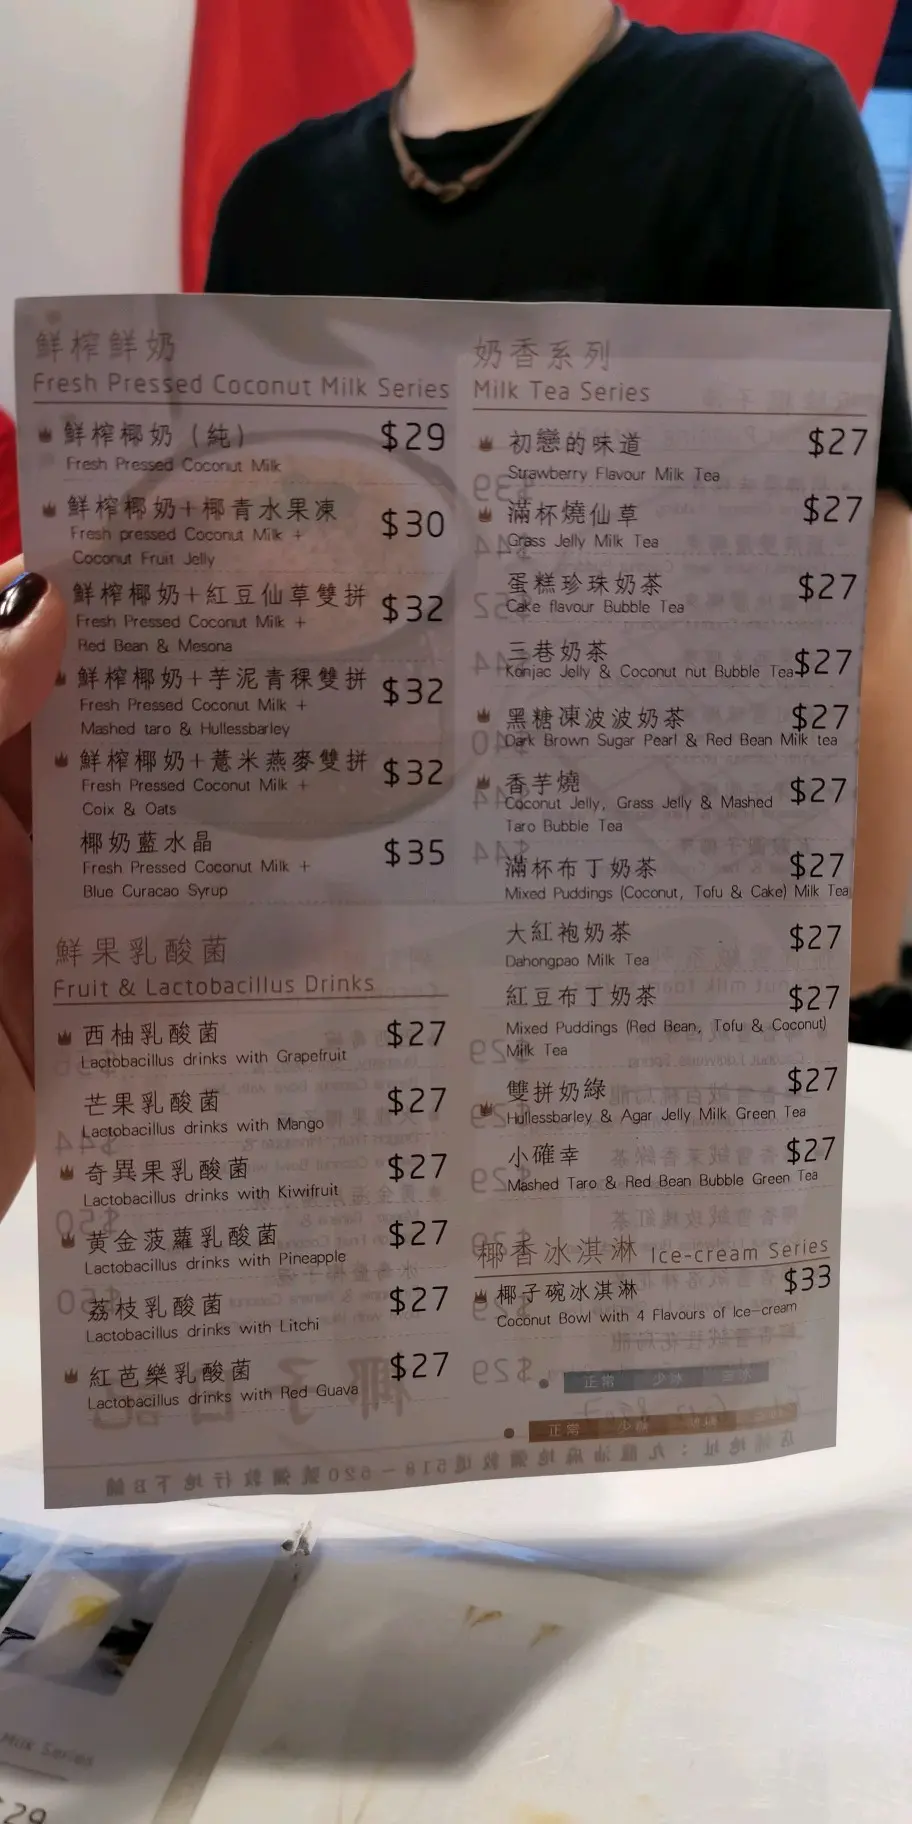 鮮榨鮮奶
Fresh Pressed Coconut Milk Series
鮮榨椰奶（純） $29
Fresh Pressed Coconut Milk
鮮榨椰奶+椰青水果凍 $30
Fresh pressed Coconut Milk +
Coconut Fruit Jelly
鮮榨椰奶+紅豆仙草雙拼 $32
Fresh Pressed Coconut Milk +
Red Bean & Mesona
鮮榨椰奶+芋泥青稞雙拼 $32
Fresh Pressed Coconut Milk +
Mashed taro & Hullessbarley
鮮榨椰奶+薏米燕麥雙拼 $32
Fresh Pressed Coconut Milk +
Coix & Oats
椰奶藍水晶 $35
Fresh Pressed Coconut Milk +
Blue Curacao Syrup
鮮果乳酸菌
Fruit & Lactobacillus Drinks
西柚乳酸菌 $27
Lactobacillus drinks with Grapefruit
芒果乳酸菌 $27
Lactobacillus drinks with Mango
奇異果乳酸菌 $27
Lactobacillus drinks with Kiwifruit
黃金菠蘿乳酸菌 $27
Lactobacillus drinks with Pineapple
荔枝乳酸菌 $27
Lactobacillus drinks with Litchi
紅芭樂乳酸菌 $27
Lactobacillus drinks with Red Guava
奶香系列
Milk Tea Series
初戀的味道 $27
Strawberry Flavour Milk Tea
滿杯燒仙草 $27
Grass Jelly Milk Tea
蛋糕珍珠奶茶 $27
Cake flavour Bubble Tea
三巷奶茶 $27
Konjac Jelly & Coconut nut Bubble Tea
黑糖凍波波奶茶 $27
Dark Brown Sugar Pearl & Red Bean Milk tea
香芋燒 $27
Coconut Jelly, Grass Jelly & Mashed
Taro Bubble Tea
滿杯布丁奶茶 $27
Mixed Puddings (Coconut, Tofu & Cake) Milk Tea
大紅袍奶茶 $27
Dahongpao Milk Tea
紅豆布丁奶茶 $27
Mixed Puddings (Red Bean, Tofu & Coconut)
Milk Tea
雙拼奶綠 $27
Hullessbarley & Agar Jelly Milk Green Tea
小確幸 $27
Mashed Taro & Red Bean Bubble Green Tea
椰香冰淇淋 Ice-cream Series
椰子碗冰淇淋 $33
Coconut Bowl with 4 Flavours of Ice-cream
正常 少冰
正常
Milk Series